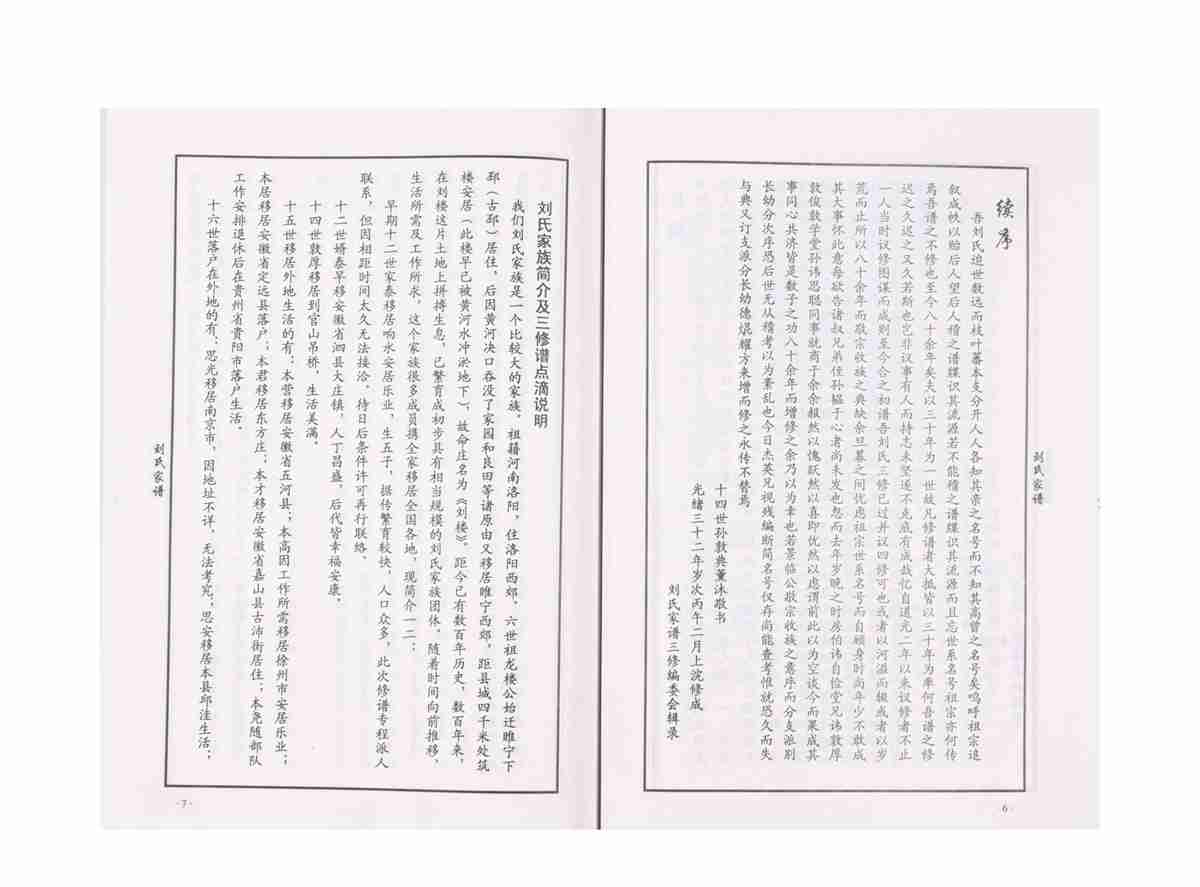 续序
吾刘氏追世数远而枝叶蕃本支分开人人各知其亲之名号而不知其高曾之名号矣呜呼祖宗追
叙成帙以贻后人望后人稽之谱牒识其流源若不能稽之谱牒识其流源而且忘世系名号祖宗亦何传
焉吾谱之不修也至今八十余年矣夫以三十年为一世故凡修谱者大抵皆以三十年为率何吾谱之修
迟之久迟之又久若斯也岂非议事有人而持志未坚遂不克底有成哉忆自道光二年以来议修者不止
一人当时议修图谋而成别至今合之初谱吾刘氏三修已过并议四修可也或者以河溢而辍或者以岁
荒而止所以八十余年而敬宗收族之典缺余旦暮之间优虑祖宗世系名号而自顾身时尚年少不敢成
其大事怀此意每欲告诸叔兄弟侄孙韫于心者尚未发也忽而去年岁晚之时房伯讳自俭堂兄讳敦厚
敦俊敦学堂孙讳思聪同事就商于余余报然以愧跃然以喜即优然以虑谓前此以为空谈今而果成其
事同心共济皆是数子之功八十余年而增修之余乃以为幸也若景临公敬宗收族之意序而分支派别
长幼分次序恐后世无从稽考以为紊乱也今日杰英兄视残编断简名号仅存尚能查考惟就恐久而失
与典又订支派分长幼德焜耀方来增而修之永传不替焉
十四世孙敦典薰沐敬书
光绪三十二年岁次丙午二月上浣修成
刘氏家谱三修编委会辑录
刘氏家谱
·6·
刘氏家族简介及三修谱点滴说明
我们刘氏家族是一个比较大的家族，祖籍河南洛阳，住洛阳西郊，六世祖龙楼公始迁睢宁下
邳（古邳）居住，后因黄河决口吞没了家园和良田等诸原由又移居睢宁西郊，距县城四千米处筑
楼安居（此楼早已被黄河水冲淤地下），故命庄名为《刘楼》。距今已有数百年历史，数百年来，
在刘楼这片土地上拼搏生息，已繁育成初步具有相当规模的刘氏家族团体，随着时间向前推移，
生活所需及工作所求，这个家族很多成员携全家移居全国各地，现简介一二：
早期十二世家泰移居响水安居乐业，生五子，据传繁育较快，人口众多，此次修谱专程派人
联系，但因相距时间太久无法接洽，待日后条件许可再行联络。
十二世婿泰早移安徽省泗县大庄镇，人丁昌盛，后代皆幸福安康。
十四世敦厚移居到官山吊桥，生活美满。
十五世移居外地生活的有：本营移居安徽省五河县；本高因工作所需移居徐州市安居乐业；
本居移居安徽省定远县落户；本君移居东方庄；本才移居安徽省嘉山县古沛街居住；本尧随部队
工作安排退休后在贵州省贵阳市落户生活。
十六世落户在外地的有，思光移居南京市，因地址不详，无法考究；思安移居本县邱洼生活；
刘氏家谱
·7·